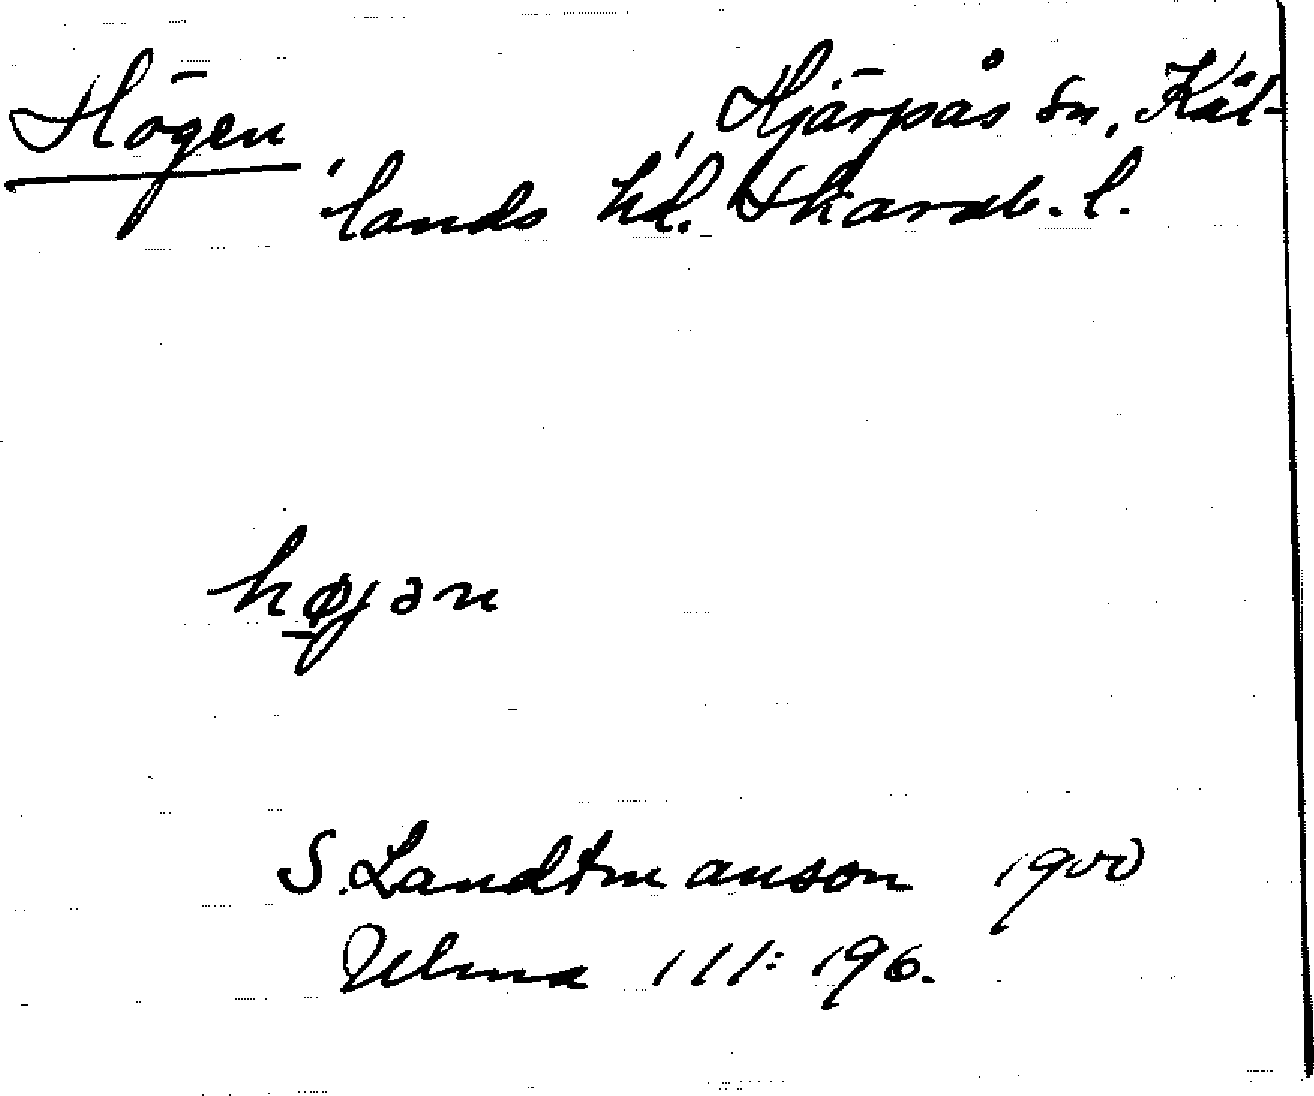 Högen , Hjärpås sn, Kål-
lands hd. Skarab. l.
højən
S. Landtmanson 1900
Ulma 111:196.